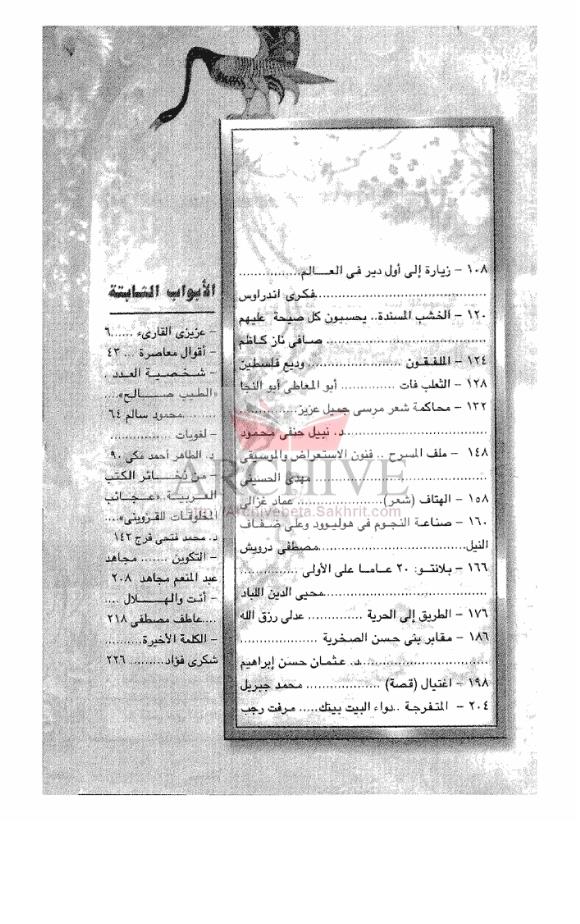 ١٠٨ - زيارة إلى أول دير فى العـــالم...............
..........................................فكرى اندراوس
١٢٠ - الخشب المسندة.. يحسبون كل صيحة عليهم
........................................ صـافى ناز كـاظم
١٢٤ - الملفـقـون ........................ وديع فلسطين
١٢٨ - الثعلب فات .............. أبو المعاطى أبو النجا
١٣٢ - محاكمة شعر مرسى جميل عزيز..............
..........................د. نبيل حنفى محمود
١٤٨ - ملف المسرح .. فنون الاستعراض والموسيقى
........................................ مهدى الحسينى
١٥٨ - الهتاف (شعر)..................... عماد غزالى
١٦٠ - صناعة النجوم فى هوليوود وعلى ضـفـاف
النيل....................................مصطفى درويش
١٦٦ - بلانتو: ٢٠ عـامـا على الأولى ..............
........................................محيى الدين اللباد
١٧٦ - الطريق إلى الحرية .............. عدلى رزق الله
١٨٦ - مقابر بنى حسن الصخرية ....................
..............................د. عـثمـان حسن إبراهيم
١٩٨ - اغتيال (قصة) .................. محمد جبريل
٢٠٤ - المتفرجة ..دواء البيت بيتك..... مرفت رجب
الأبواب الثابتة
- عزيزى القارىء ......٦
- أقوال معاصرة ... ٤٣
- شـخـصـيـة العـدد .
«الطيب صـــالح»....
.........محمود سالم ٦٤
- لغويات ................
د. الطاهر أحمد مكى ٩٠
- من ذخـائـر الكتب
العربيـة.. «عـجـائب
المخلوقات للقزوينى»....
د. محمد فتحى فرج ١٤٢
- التكوين ....... مجاهد
عبد المنعم مجاهد ٢٠٨
- أنـت والـهــــلال ....
....عاطف مصطفى ٢١٨
- الكلمة الأخيرة..........
شكرى فؤاد........... ٢٢٦
ARCHIVE
http://Archivebeta.Sakhrit.com